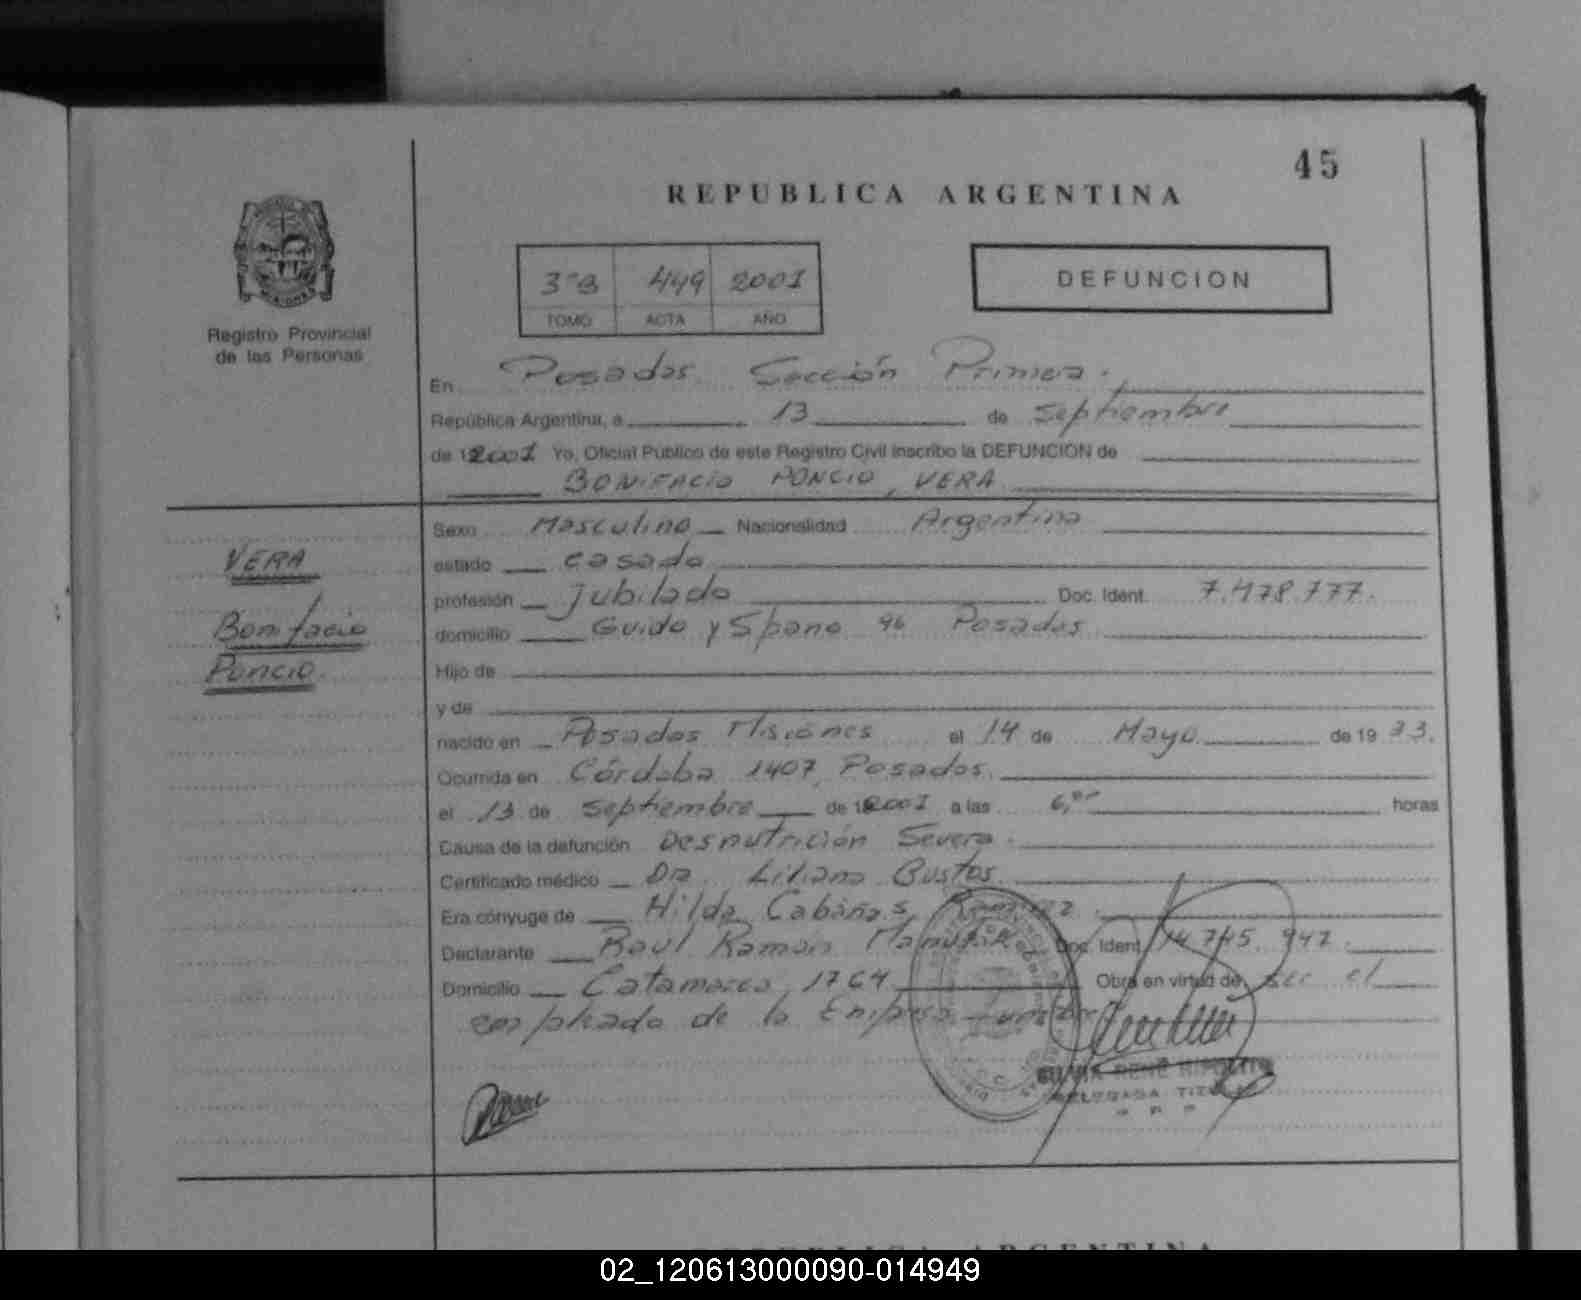 45
REPUBLICA ARGENTINA
3ºB 449 2001
TOMO ACTA AÑO
DEFUNCION
MISIONES
Registro Provincial
de las Personas
En Posadas Sección Primera.
República Argentina, a 13 de Septiembre
de 12001 Yo, Oficial Público de este Registro Civil inscribo la DEFUNCION de
BONIFACIO PONCIO, VERA
VERA
Bonifacio
Poncio.
Sexo Masculino Nacionalidad Argentina
estado casado
profesión jubilado Doc. Ident. 7.478.777.
domicilio Guido y Spano 96 Posadas
Hijo de
y de
nacido en Posadas Misiones el 14 de Mayo de 19 33.
Ocurrida en Córdoba 1407, Posadas.
el 13 de Septiembre de 12001 a las 6,00 horas
Causa de la defunción Desnutrición Severa.
Certificado médico Dra. Liliana Bustos
Era cónyuge de Hilda Cabañas Ramirez.
Declarante Raúl Ramón Doc. Ident. 14.745.947.
Domicilio Catamarca 1764 Obra en virtud de ser el
empleado de la Empresa
SILVIA RENÉ RIPOLITO
DELEGADA TITULAR
REPUBLICA ARGENTINA
02_120613000090-014949